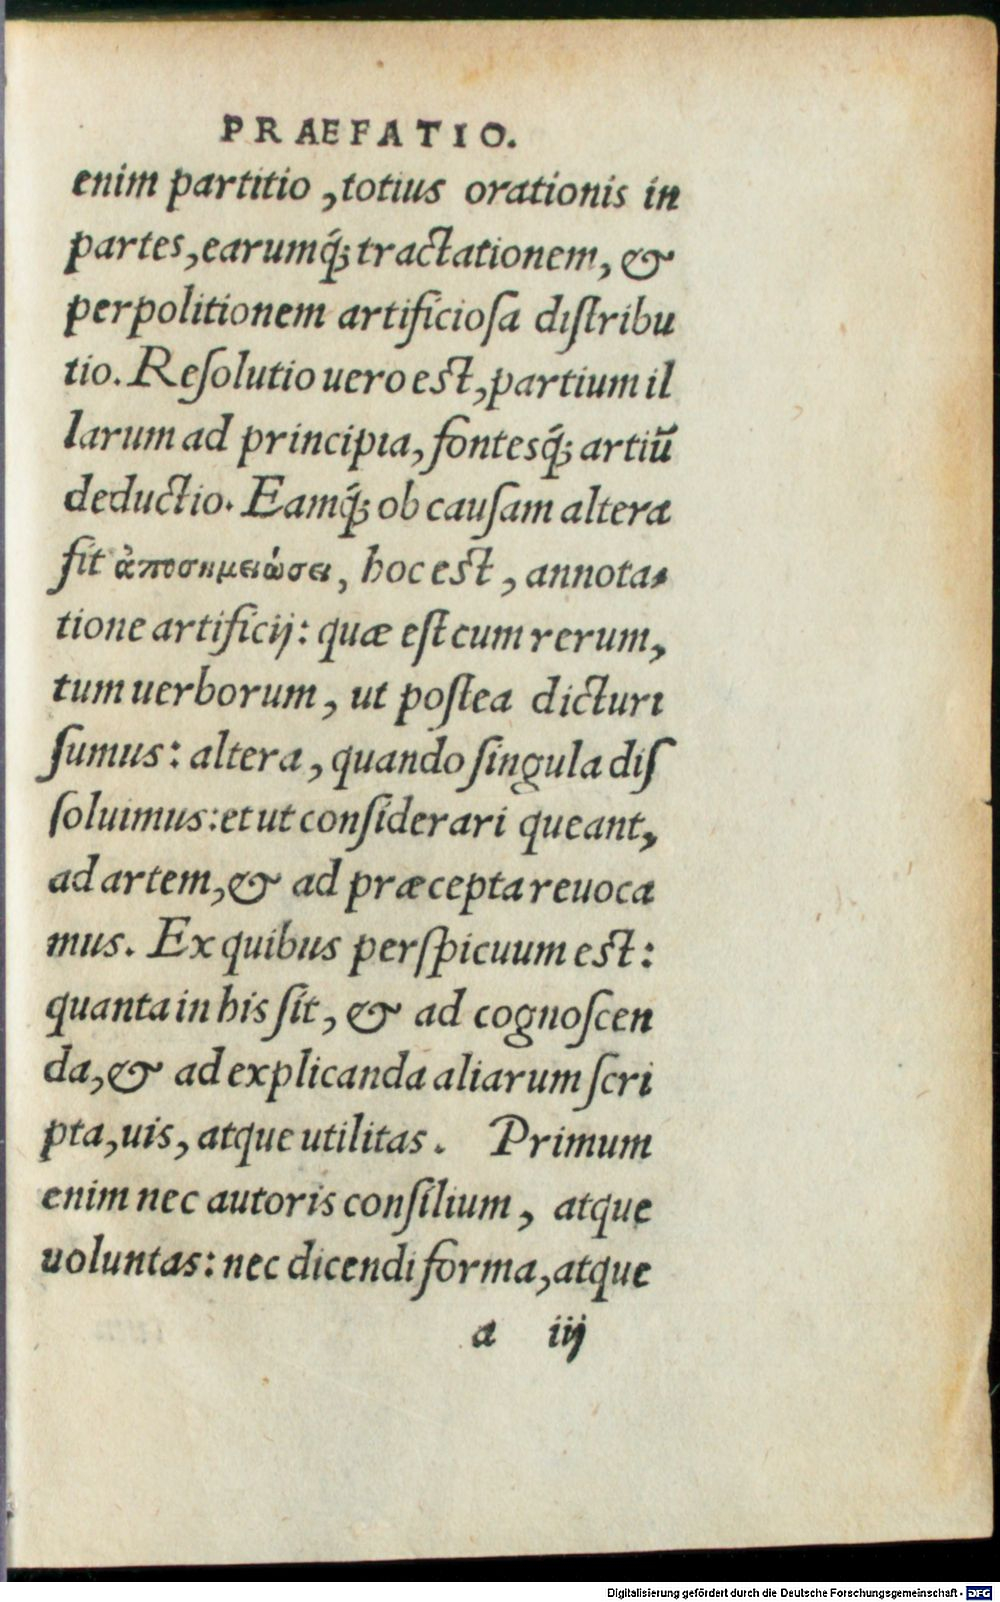 PRAEFATIO.
enim partitio, totius orationis in
partes, earumq́; tractationem, &
perpolitionem artificioſa diſtribu
tio. Reſolutio uero eſt, partium il
larum ad principia, fontesq́; artiū
deductio. Eamq́; ob cauſam altera
fit ἀποσημειώσει, hoc eſt, annota-
tione artificij: quæ eſt cum rerum,
tum uerborum, ut poſtea dicturi
ſumus: altera, quando ſingula diſ
ſoluimus: et ut conſiderari queant,
ad artem, & ad præcepta reuoca
mus. Ex quibus perſpicuum eſt:
quanta in his ſit, & ad cognoſcen
da, & ad explicanda aliarum ſcri
pta, uis, atque utilitas. Primum
enim nec autoris conſilium, atque
uoluntas: nec dicendi forma, atque
a iij
Digitalisierung gefördert durch die Deutsche Forschungsgemeinschaft - DFG